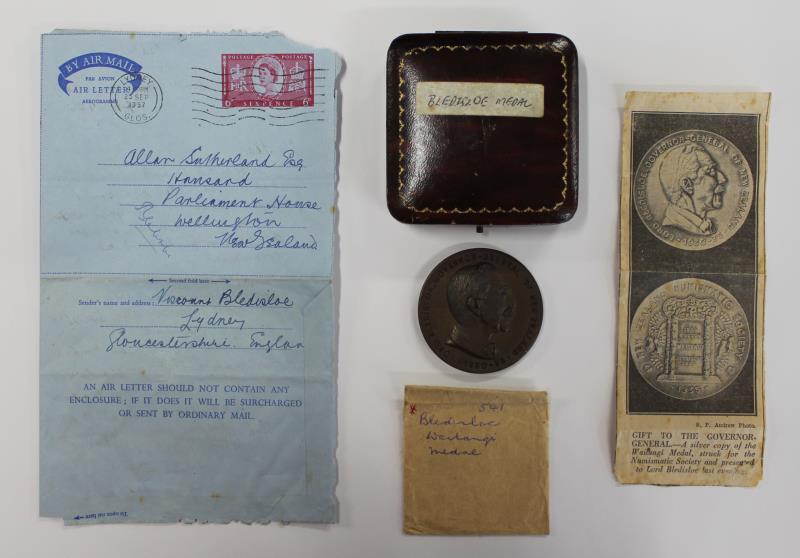 BY AIR MAIL
PAR AVION
AIR LETTER
AEROGRAMME
LYDNEY
23 SEP
1957
GLOS.
POSTAGE POSTAGE
6D SIXPENCE 6D
Allan Sutherland Esq
Hansard
Parliament House
Wellington
New Zealand
Second fold here
Sender's name and address: Viscount Bledisloe
Lydney
Gloucestershire. England
AN AIR LETTER SHOULD NOT CONTAIN ANY
ENCLOSURE; IF IT DOES IT WILL BE SURCHARGED
OR SENT BY ORDINARY MAIL.
To open cut here
BLEDISLOE MEDAL
LORD BLEDISLOE GOVERNOR-GENERAL OF NEW ZEALAND
541
x Bledisloe
Waitangi
Medal
LORD BLEDISLOE GOVERNOR-GENERAL OF NEW ZEALAND
NEW ZEALAND NUMISMATIC SOCIETY
1935
S. P. Andrew Photo.
GIFT TO THE GOVERNOR-
GENERAL.—A silver copy of the
Waitangi Medal, struck for the
Numismatic Society and presented
to Lord Bledisloe last evening.